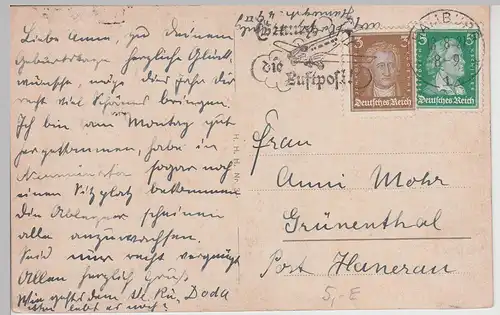 Liebe Anna, zu deinem
Geburtstage herzliche Glück-
wünsche, möge das Jahr dir
recht viel Schönes bringen.
Ich bin am Montag gut
hergekommen, habe in
Neumünster sogar noch
einen Sitzplatz bekommen
die Ableger scheinen
alle anzuwachsen.
Seid nur recht vergnügt
Allen herzlich Gruß
Doda
Wie gehts dem
lebt es noch?
Benutzt
Die
Luftpost
3 3
Deutsches Reich
5 5
Deutsches Reich
Frau
Anni Mohr
Grünenthal
Post Hanerau
5,-E